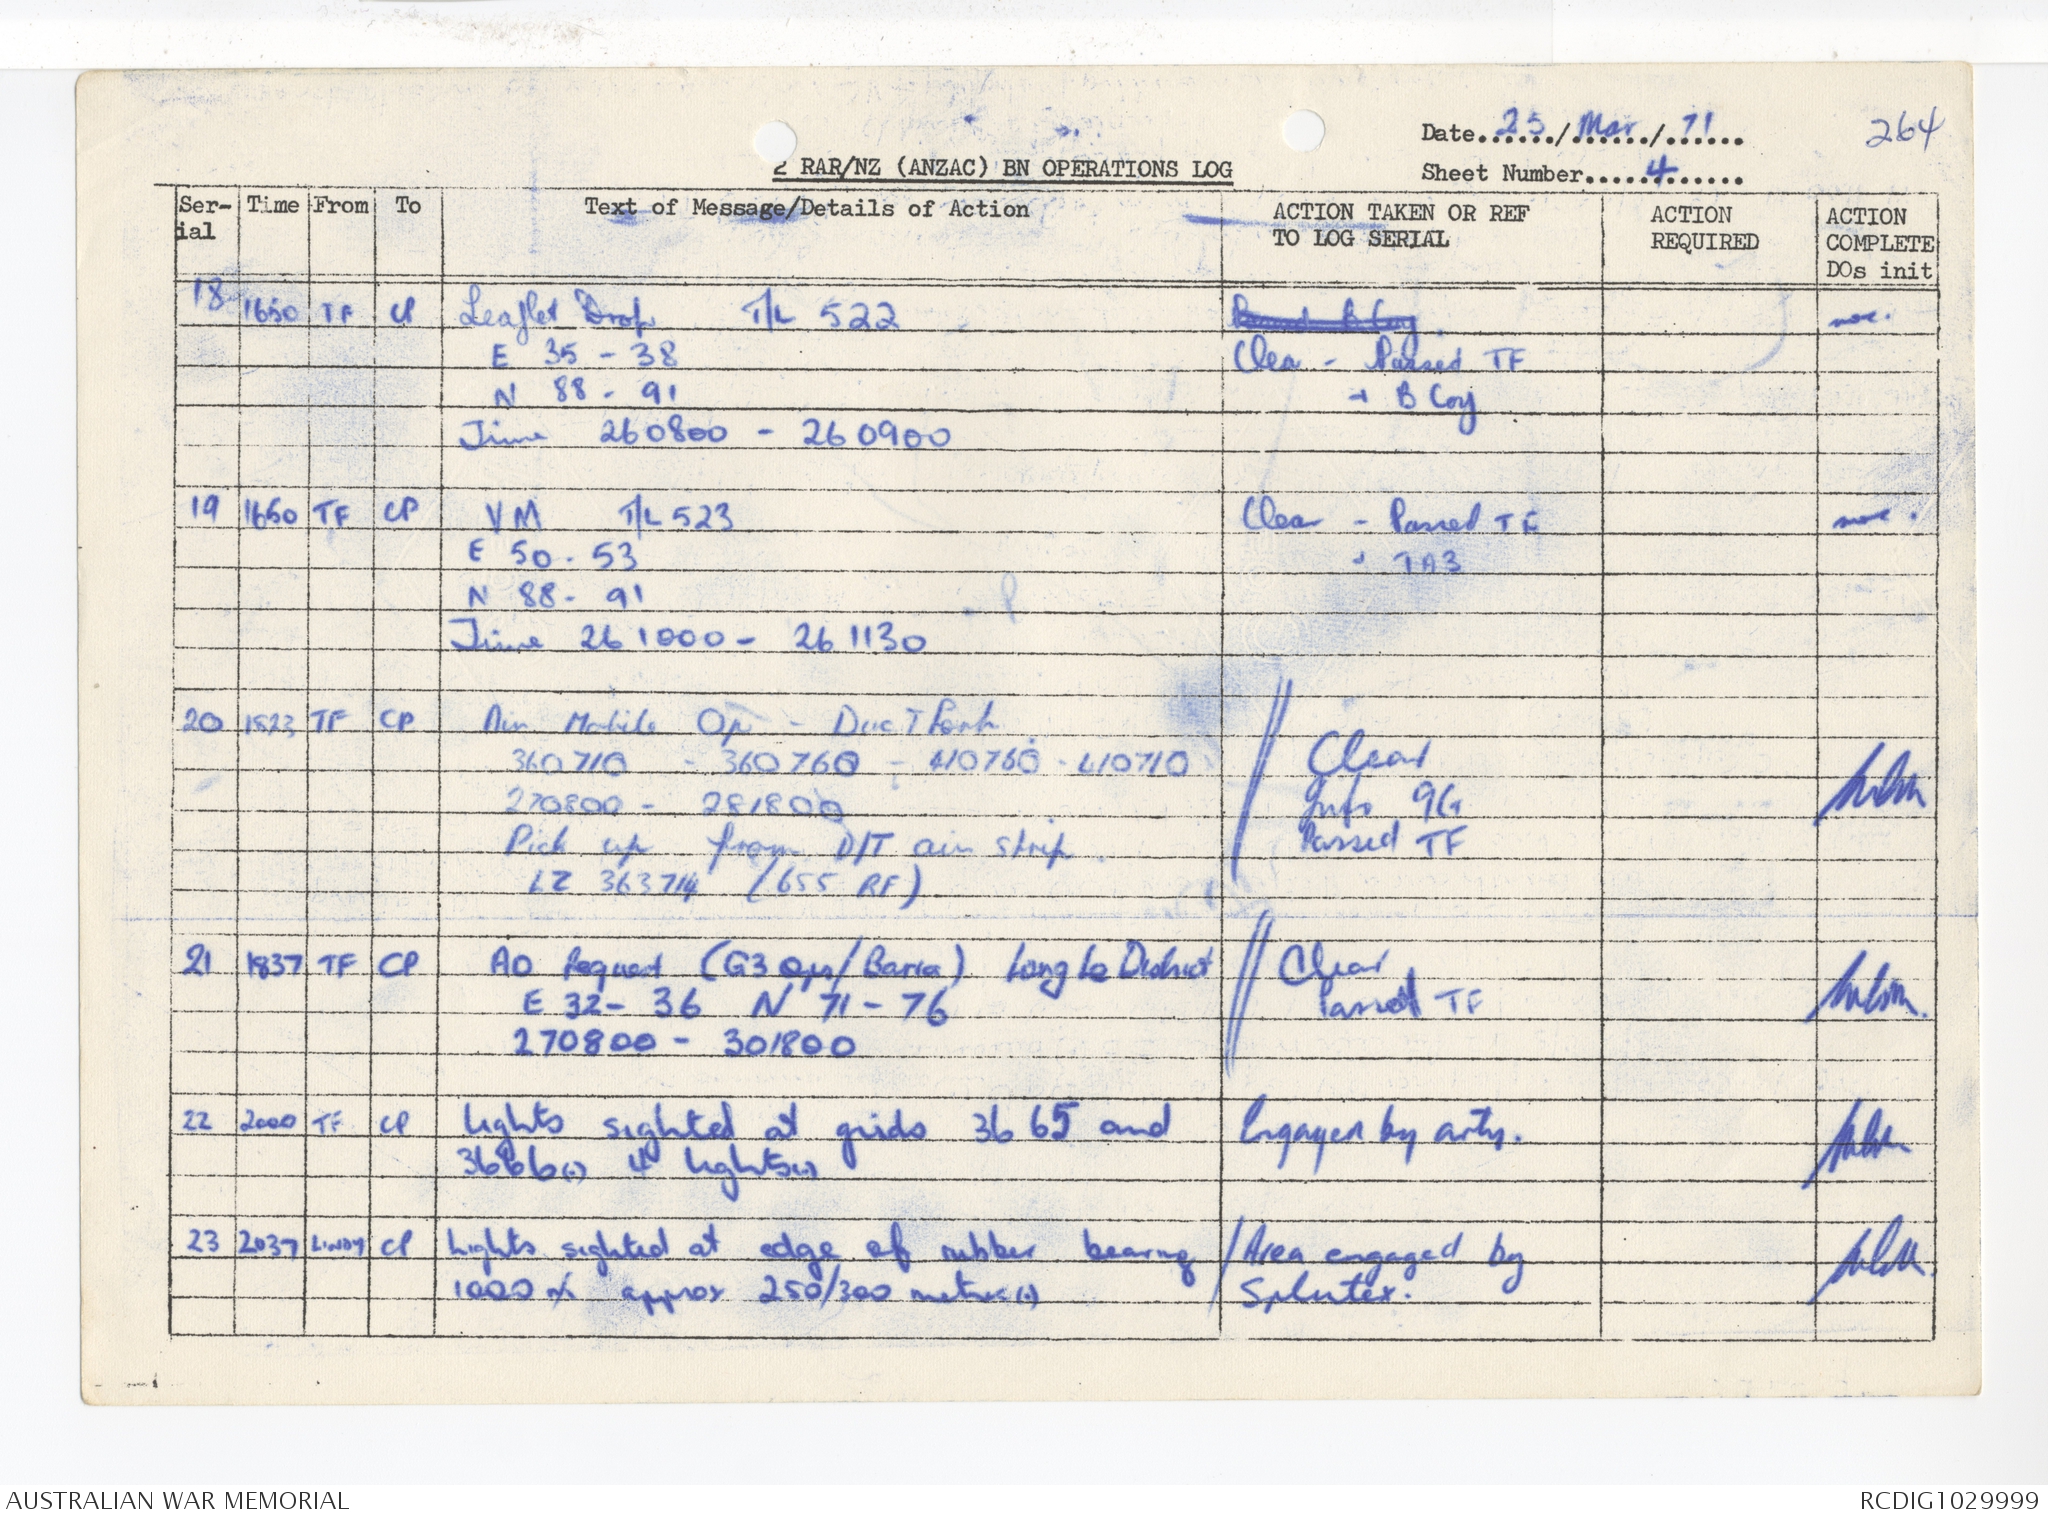 Date 25/Mar/71
264
2 RAR/NZ (ANZAC) BN OPERATIONS LOG
Sheet Number 4
Ser-ial Time From To Text of Message/Details of Action ACTION TAKEN OR REF TO LOG SERIAL ACTION REQUIRED ACTION COMPLETE DOs init
18 1650 TF CP Leaflet Drop T/L 522
E 35 - 38 Clear - Passed TF
N 88 - 91 + B Coy
Time 260800 - 260900
19 1650 TF CP VM T/L 523 Clear - Passed TF
E 50 - 53 + 7A3
N 88 - 91
Time 261000 - 261130
20 1823 TF CP Air Mobile Op - Duc Thanh
360710 - 360760 - 410760 - 410710 Clear
270800 - 281800 Info 9G
Pick up from D/T air strip. Passed TF
LZ 363714 (655 RF)
21 1837 TF CP AO Request (G3 Ops/Baria) Long Le District Clear
E 32 - 36 N 71 - 76 Passed TF
270800 - 301800
22 2000 TF CP Lights sighted at grids 3665 and Engaged by arty.
3666(.) 4 lights(.)
23 2037 LINDY CP Lights sighted at edge of rubber bearing Area engaged by
1000 approx 250/300 metres(.) Splintex.
AUSTRALIAN WAR MEMORIAL
RCDIG1029999